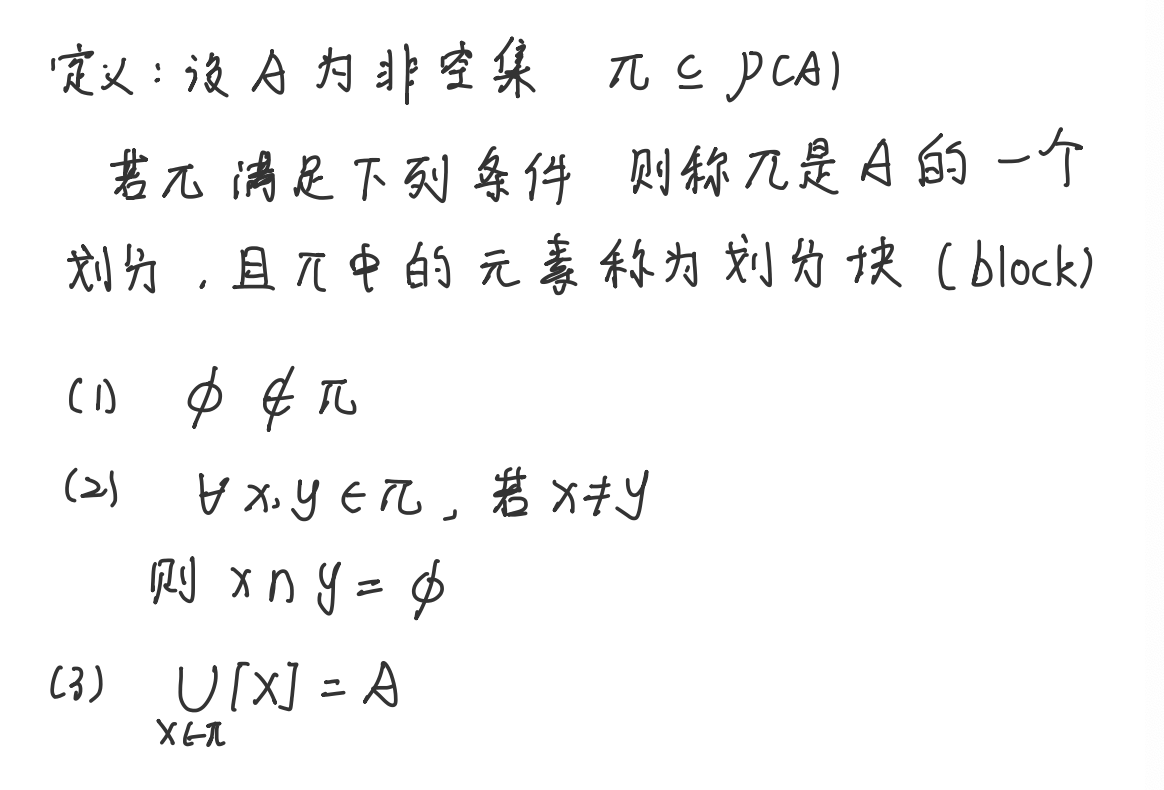 定义:设 A 为非空集 π ⊆ P(A)
若π 满足下列条件 则称π是 A 的一个
划分,且π中的元素称为划分块 (block)
(1) ϕ ∉ π
(2) ∀ x,y ∈ π, 若 x≠y
则 x∩y = ϕ
(3) ∪[x] = A
x∈π